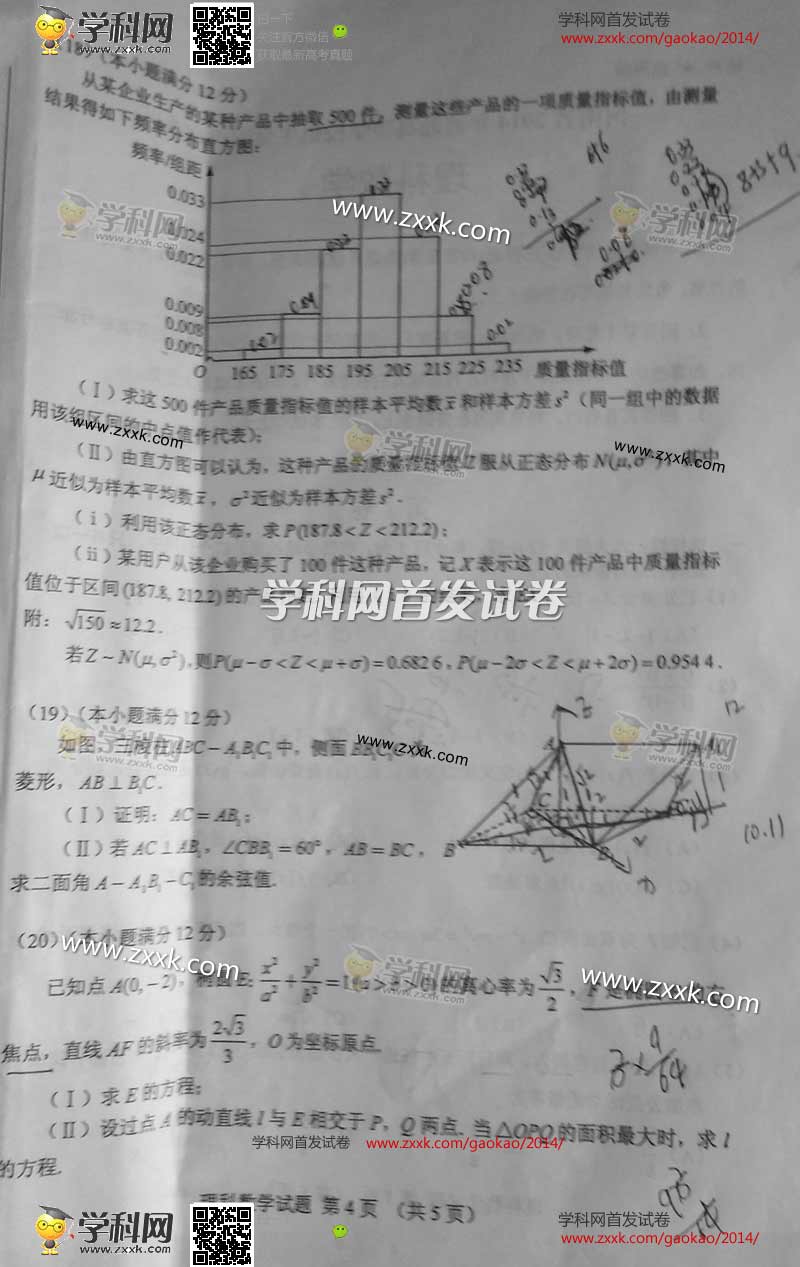 学科网
www.zxxk.com
扫一下
关注官方微信
获取最新高考真题
学科网首发试卷
www.zxxk.com/gaokao/2014/
(本小题满分12分)
从某企业生产的某种产品中抽取500件,测量这些产品的一项质量指标值,由测量
结果得如下频率分布直方图:
频率/组距
0.033
0.024
0.022
0.009
0.008
0.002
O 165 175 185 195 205 215 225 235 质量指标值
学科网
www.zxxk.com
学科网
www.zxxk.com
www.zxxk.com
8+5+9
(Ⅰ)求这500件产品质量指标值的样本平均数x̄和样本方差s²(同一组中的数据
用该组区间的中点值作代表);
www.zxxk.com
学科网
www.zxxk.com
www.zxxk.com
(Ⅱ)由直方图可以认为,这种产品的质量指标值Z服从正态分布N(μ,σ²),其中
μ近似为样本平均数x̄,σ²近似为样本方差s².
(ⅰ)利用该正态分布,求P(187.8<Z<212.2);
(ⅱ)某用户从该企业购买了100件这种产品,记X表示这100件产品中质量指标
值位于区间(187.8,212.2)的产
学科网首发试卷
附:√150≈12.2.
若Z~N(μ,σ²),则P(μ-σ<Z<μ+σ)=0.6826,P(μ-2σ<Z<μ+2σ)=0.9544.
(19)(本小题满分12分)
如图,三棱柱ABC-A₁B₁C₁中,侧面BB₁C₁C
www.zxxk.com
菱形,AB⊥B₁C.
(Ⅰ)证明:AC=AB₁;
(Ⅱ)若AC⊥AB₁,∠CBB₁=60°,AB=BC,
求二面角A-A₁B₁-C₁的余弦值.
学科网
www.zxxk.com
学科网
www.zxxk.com
B
(0.1)
(20)(本小题满分12分)
www.zxxk.com
已知点A(0,-2),椭圆E:x²/a²+y²/b²=1(a>b>0)的离心率为√3/2,F是
学科网
www.zxxk.com
www.zxxk.com
焦点,直线AF的斜率为2√3/3,O为坐标原点.
(Ⅰ)求E的方程;
(Ⅱ)设过点A的动直线l与E相交于P,Q两点.当△OPQ的面积最大时,求l
的方程.
学科网首发试卷 www.zxxk.com/gaokao/2014/
理科数学试题 第4页 (共5页)
学科网
www.zxxk.com
学科网
www.zxxk.com
学科网首发试卷
www.zxxk.com/gaokao/2014/